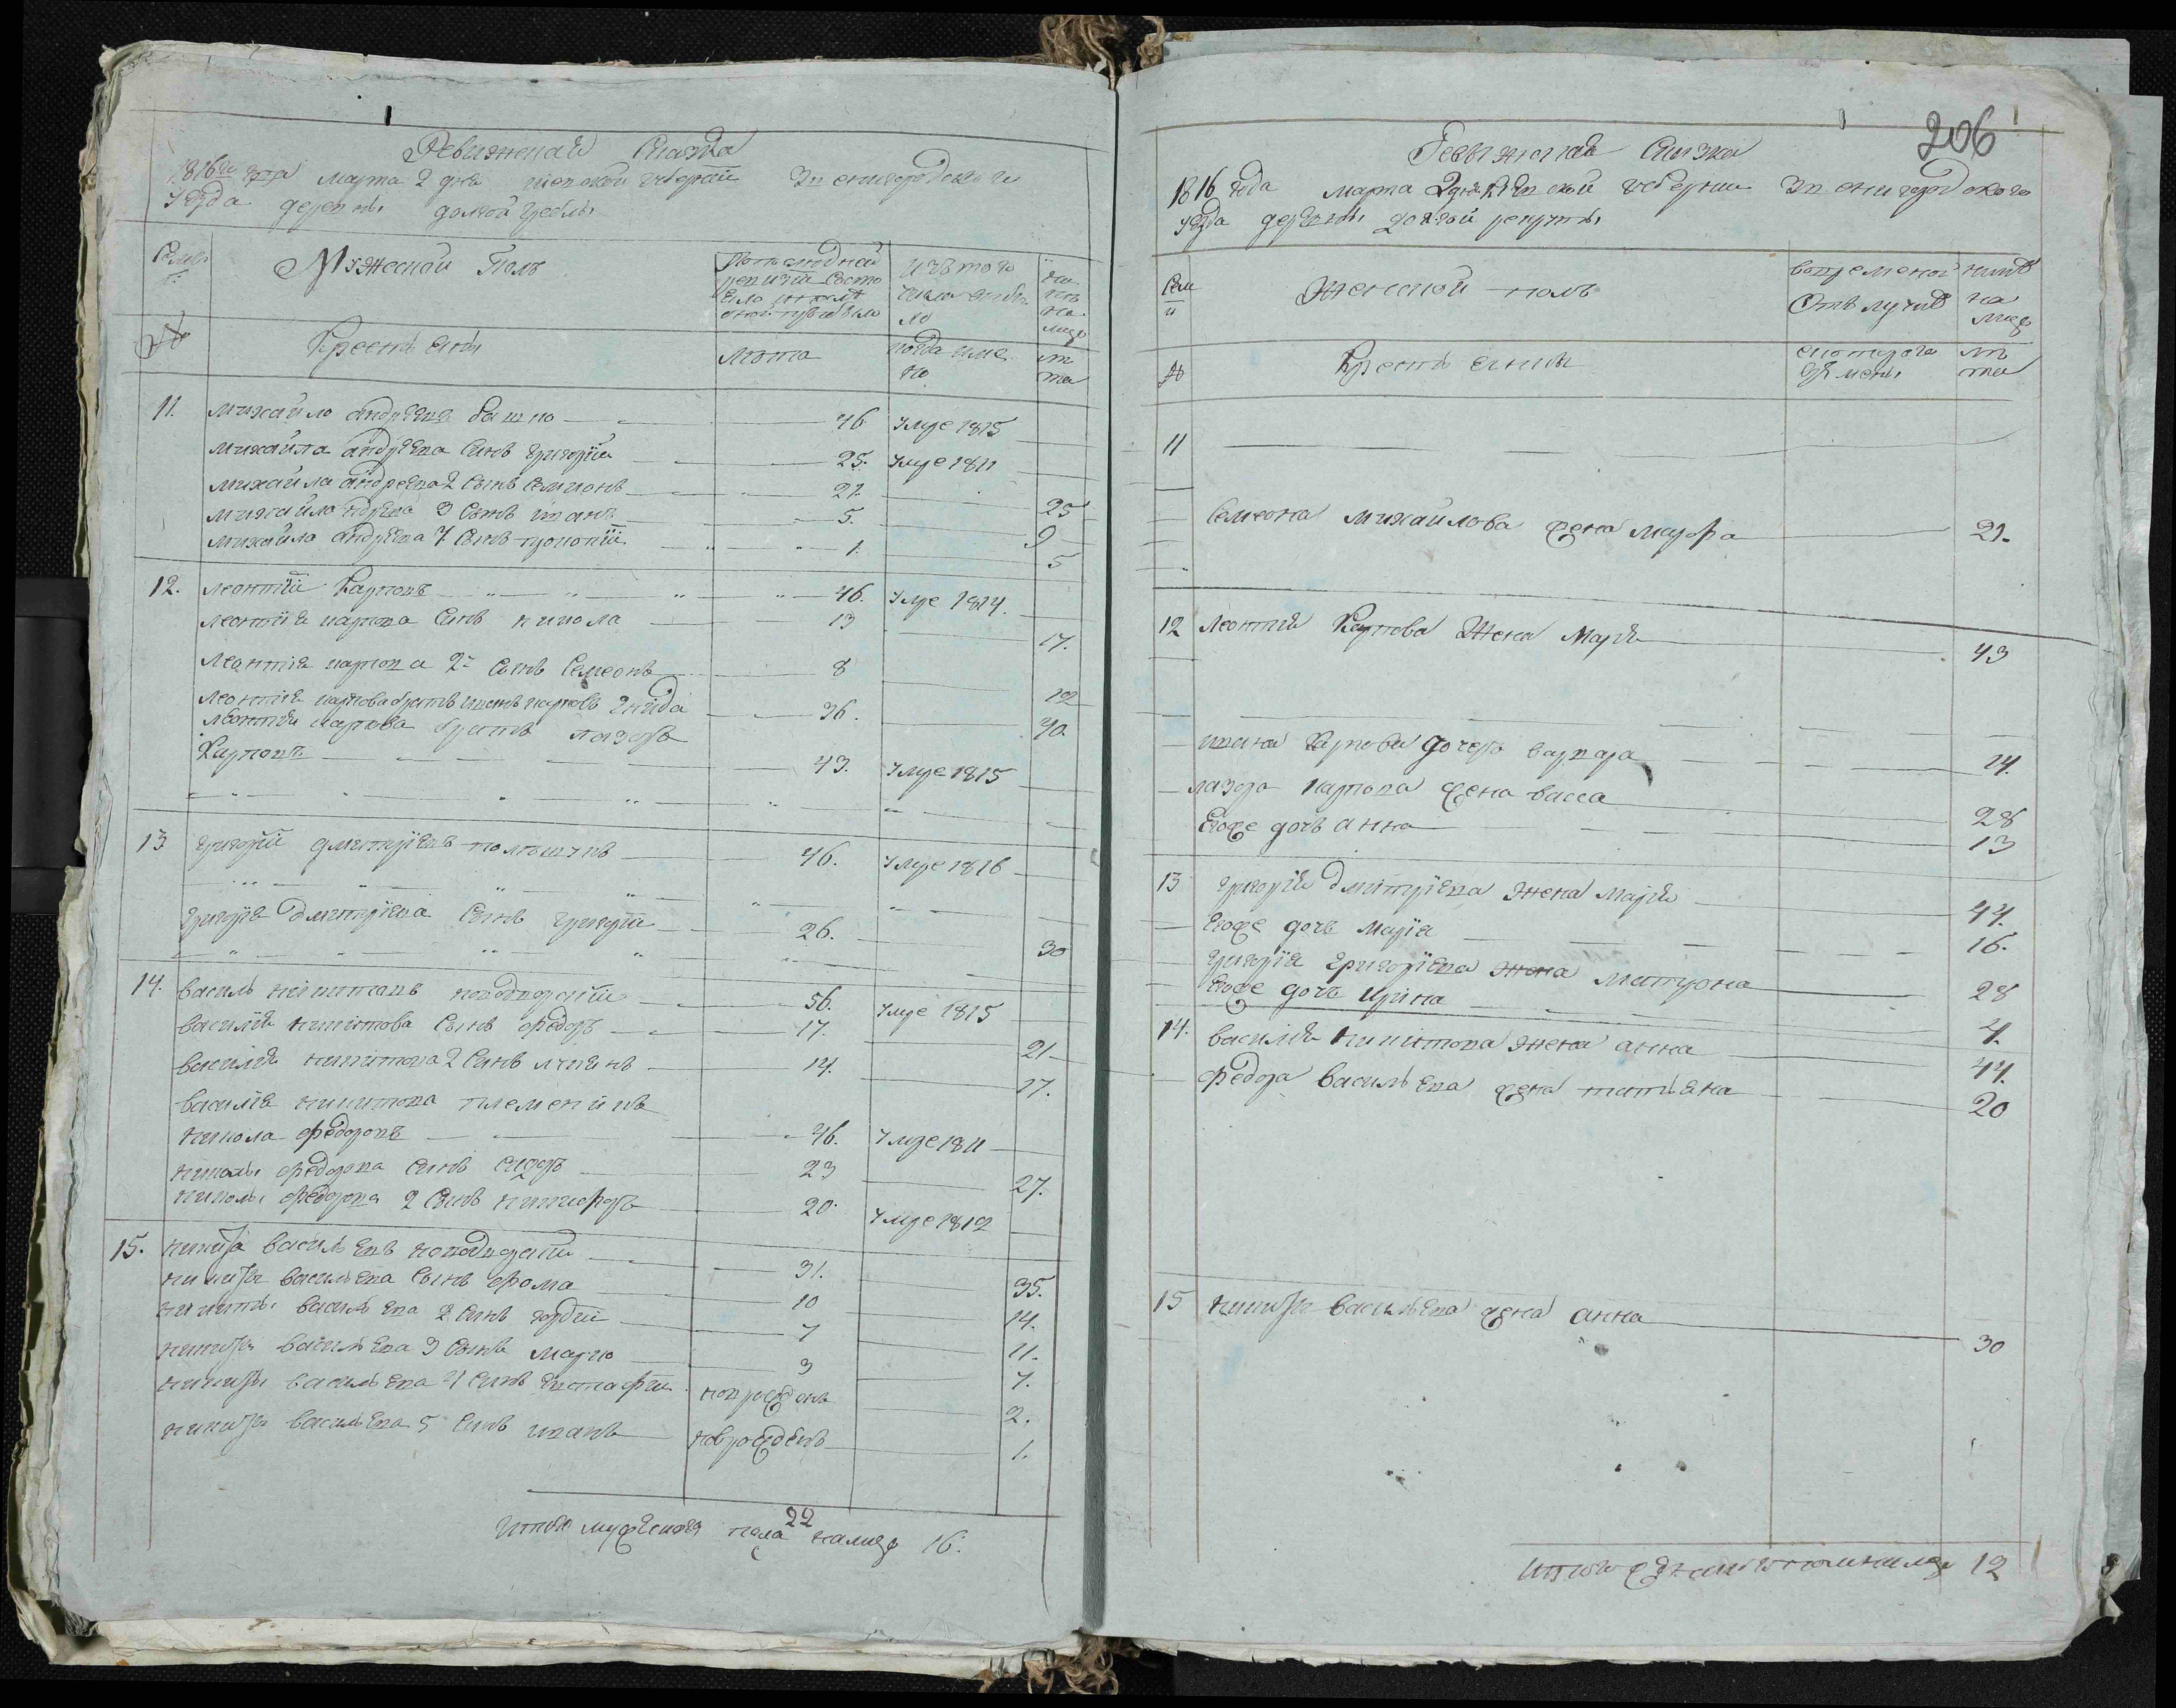 Ревижская Сказка
1816го года марта 2 дня киевской губернии Звенигородского
уезда деревни долгой гребли
Семьи
Мужеской Полъ
По последней ревизіи состояло
Изъ того числа выбыло
Ныне на лицо
№
Крестьяни
Лѣта
когда имено
лѣта
11. михайло андреевъ башко 46 умре 1815
михайла андреева синъ григорій 25. умре 1811
михайла андреева 2 Сынъ Семионъ 21. 25
михайла андреева 3 Сынъ иванъ 5. 9
михайла андреева 4 Синъ прокопій 1. 5
12. леонтій Карповъ 46. умре 1814.
леонтія карпова Синъ никола 13 17.
леонтія карпова 2й Сынъ Семеонъ 8 12
леонтія карпова братъ иванъ карповъ 36. 40.
леонтія карпова братъ лазоръ
Карповъ 43. умре 1815
13 григорій дмитріевъ 46. умре 1816
григорія дмитріева Сынъ григорій 26. 30
14. василь никитинъ 56. умре 1815
василія никитова Сынъ федоръ 17. 21
василія никитова 2 Синъ 14. 17.
василія никитова племенникъ
никола федоровъ 46. умре 1811
николы федорова синъ сидоръ 23 27.
николы федорова 2 Сынъ никифоръ 20. умре 1812
15. никита васильевъ 31. 35.
никиты васильева Сынъ фома 10 14.
никиты васильева 2 Синъ гордій 7 11.
никиты васильева 3 Сынъ марко 3 7.
никиты васильева 4 Синъ евстафій новрожденъ 2.
никиты васильева 5 Синъ иванъ новрожденъ 1.
Итого мужеского пола 22 налицо 16.
206
Ревижская Сказка
1816 года марта 2 дня Киевской губернии Звенигородского
уезда деревни долгой
Семи
Женской полъ
Вовременой отлучке
ныне на лицо
№
Крестьянки
с которого времени
лѣта
11
Семеона михайлова жена марфа 21.
12 Леонтия Карпова Жена Марія 43
ивана Карпова дочерь варвара 14.
лазора карпова жена васса 28
Егоже дочь анна 13
13 григорія дмитріева жена марія 44.
Егоже дочь Марія 16.
григорія григоріева жена матрона 28
Егоже дочь Ирина 4.
14. василія никитова жена анна 44.
федора васильева жена татьяна 20
15 никиты васильева жена анна 30
Итого женского пола налицо 12